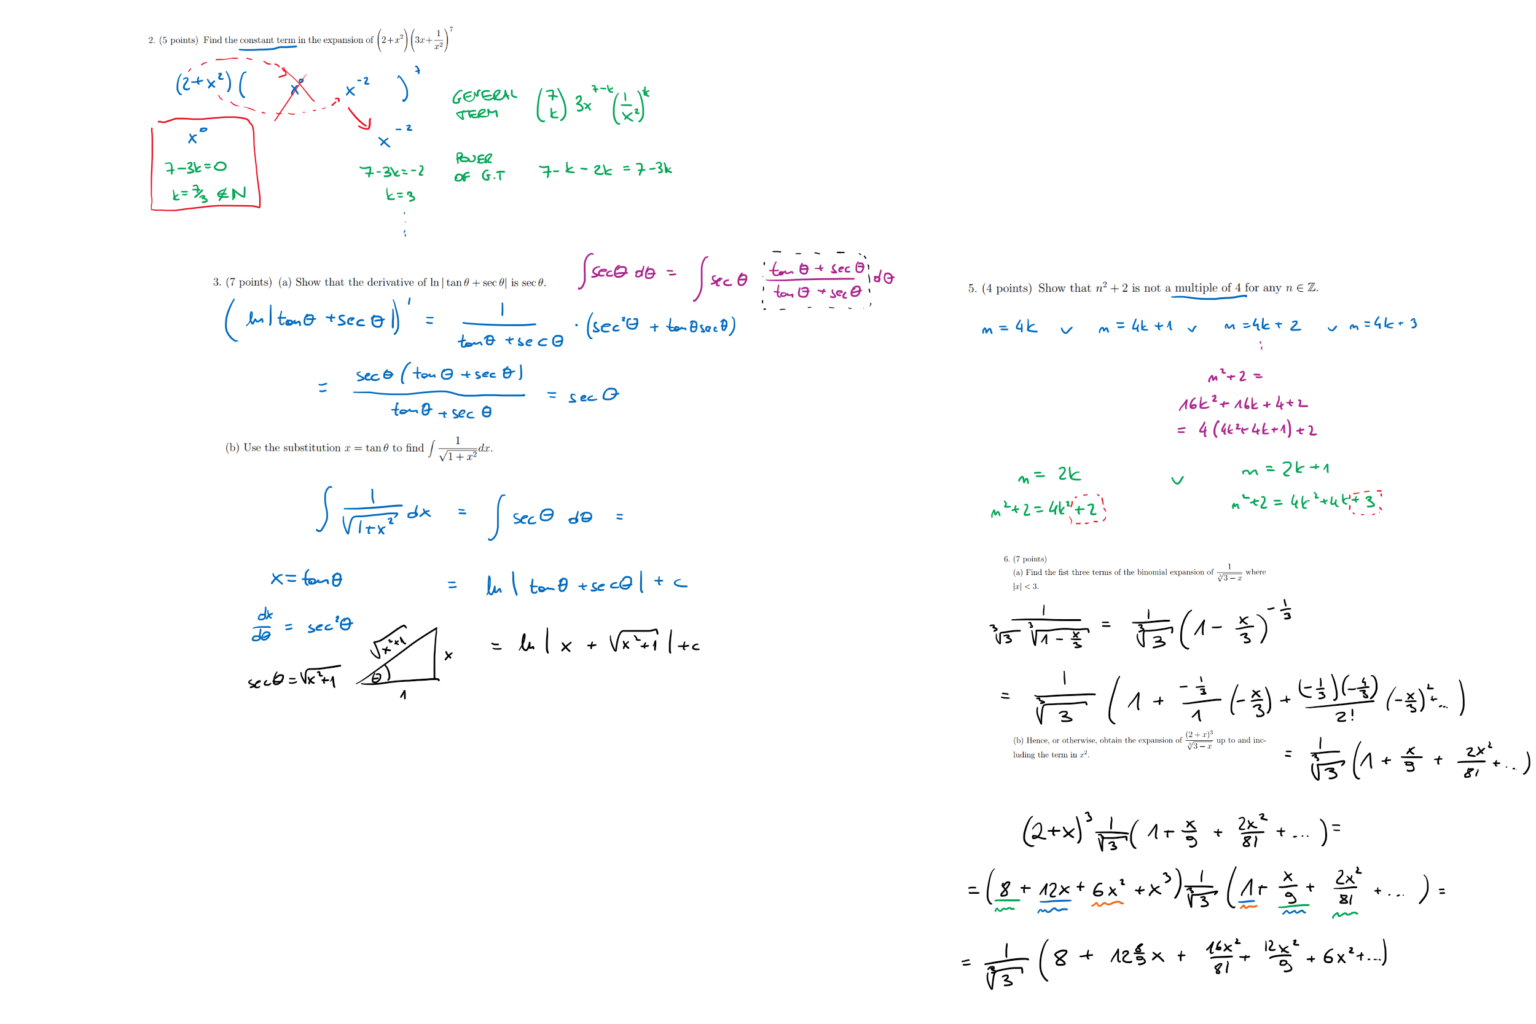 2. (5 points) Find the constant term in the expansion of (2+x²)(3x+1/x²)⁷
(2+x²)( x⁰ x⁻² )⁷
GENERAL TERM (7 k) 3x^(7-k) (1/x²)^k
x⁰ x⁻²
7-3k=0 7-3k=-2
POWER OF G.T 7-k-2k = 7-3k
k=7/3 ∉ N k=3
3. (7 points) (a) Show that the derivative of ln | tan θ + sec θ| is sec θ.
∫secθ dθ = ∫sec θ (tan θ + sec θ)/(tan θ + sec θ) dθ
(ln|tanθ + sec θ|)' = 1/(tanθ + sec θ) · (sec²θ + tanθsecθ)
= secθ (tan θ + sec θ)/(tanθ + sec θ) = sec θ
(b) Use the substitution x = tan θ to find ∫ 1/√(1+x²) dx.
∫ 1/√(1+x²) dx = ∫ secθ dθ =
x = tanθ = ln | tanθ + secθ | + c
dx/dθ = sec²θ
√(x²+1) x θ 1
secθ = √(x²+1) = ln | x + √(x²+1) | + c
5. (4 points) Show that n² + 2 is not a multiple of 4 for any n ∈ ℤ.
n = 4k ∨ n = 4k+1 ∨ n = 4k+2 ∨ n = 4k+3
n²+2 =
16k² + 16k + 4+2
= 4(4k²+4k+1)+2
n = 2k ∨ n = 2k+1
n²+2 = 4k²+2 n²+2 = 4k²+4k+3
6. (7 points)
(a) Find the fist three terms of the binomial expansion of 1/∛(3−x) where
|x| < 3.
1/(∛3 ∛(1−x/3)) = 1/∛3 (1 − x/3)^(−1/3)
= 1/∛3 (1 + (−1/3)/1 (−x/3) + (−1/3)(−4/3)/2! (−x/3)² ...)
(b) Hence, or otherwise, obtain the expansion of (2+x)³/∛(3−x) up to and inc-
luding the term in x².
= 1/∛3 (1 + x/9 + 2x²/81 + ...)
(2+x)³ 1/∛3 (1 + x/9 + 2x²/81 + ...) =
= (8 + 12x + 6x² + x³) 1/∛3 (1 + x/9 + 2x²/81 + ...) =
= 1/∛3 (8 + 12 8/9 x + 16x²/81 + 12x²/9 + 6x² + ...)